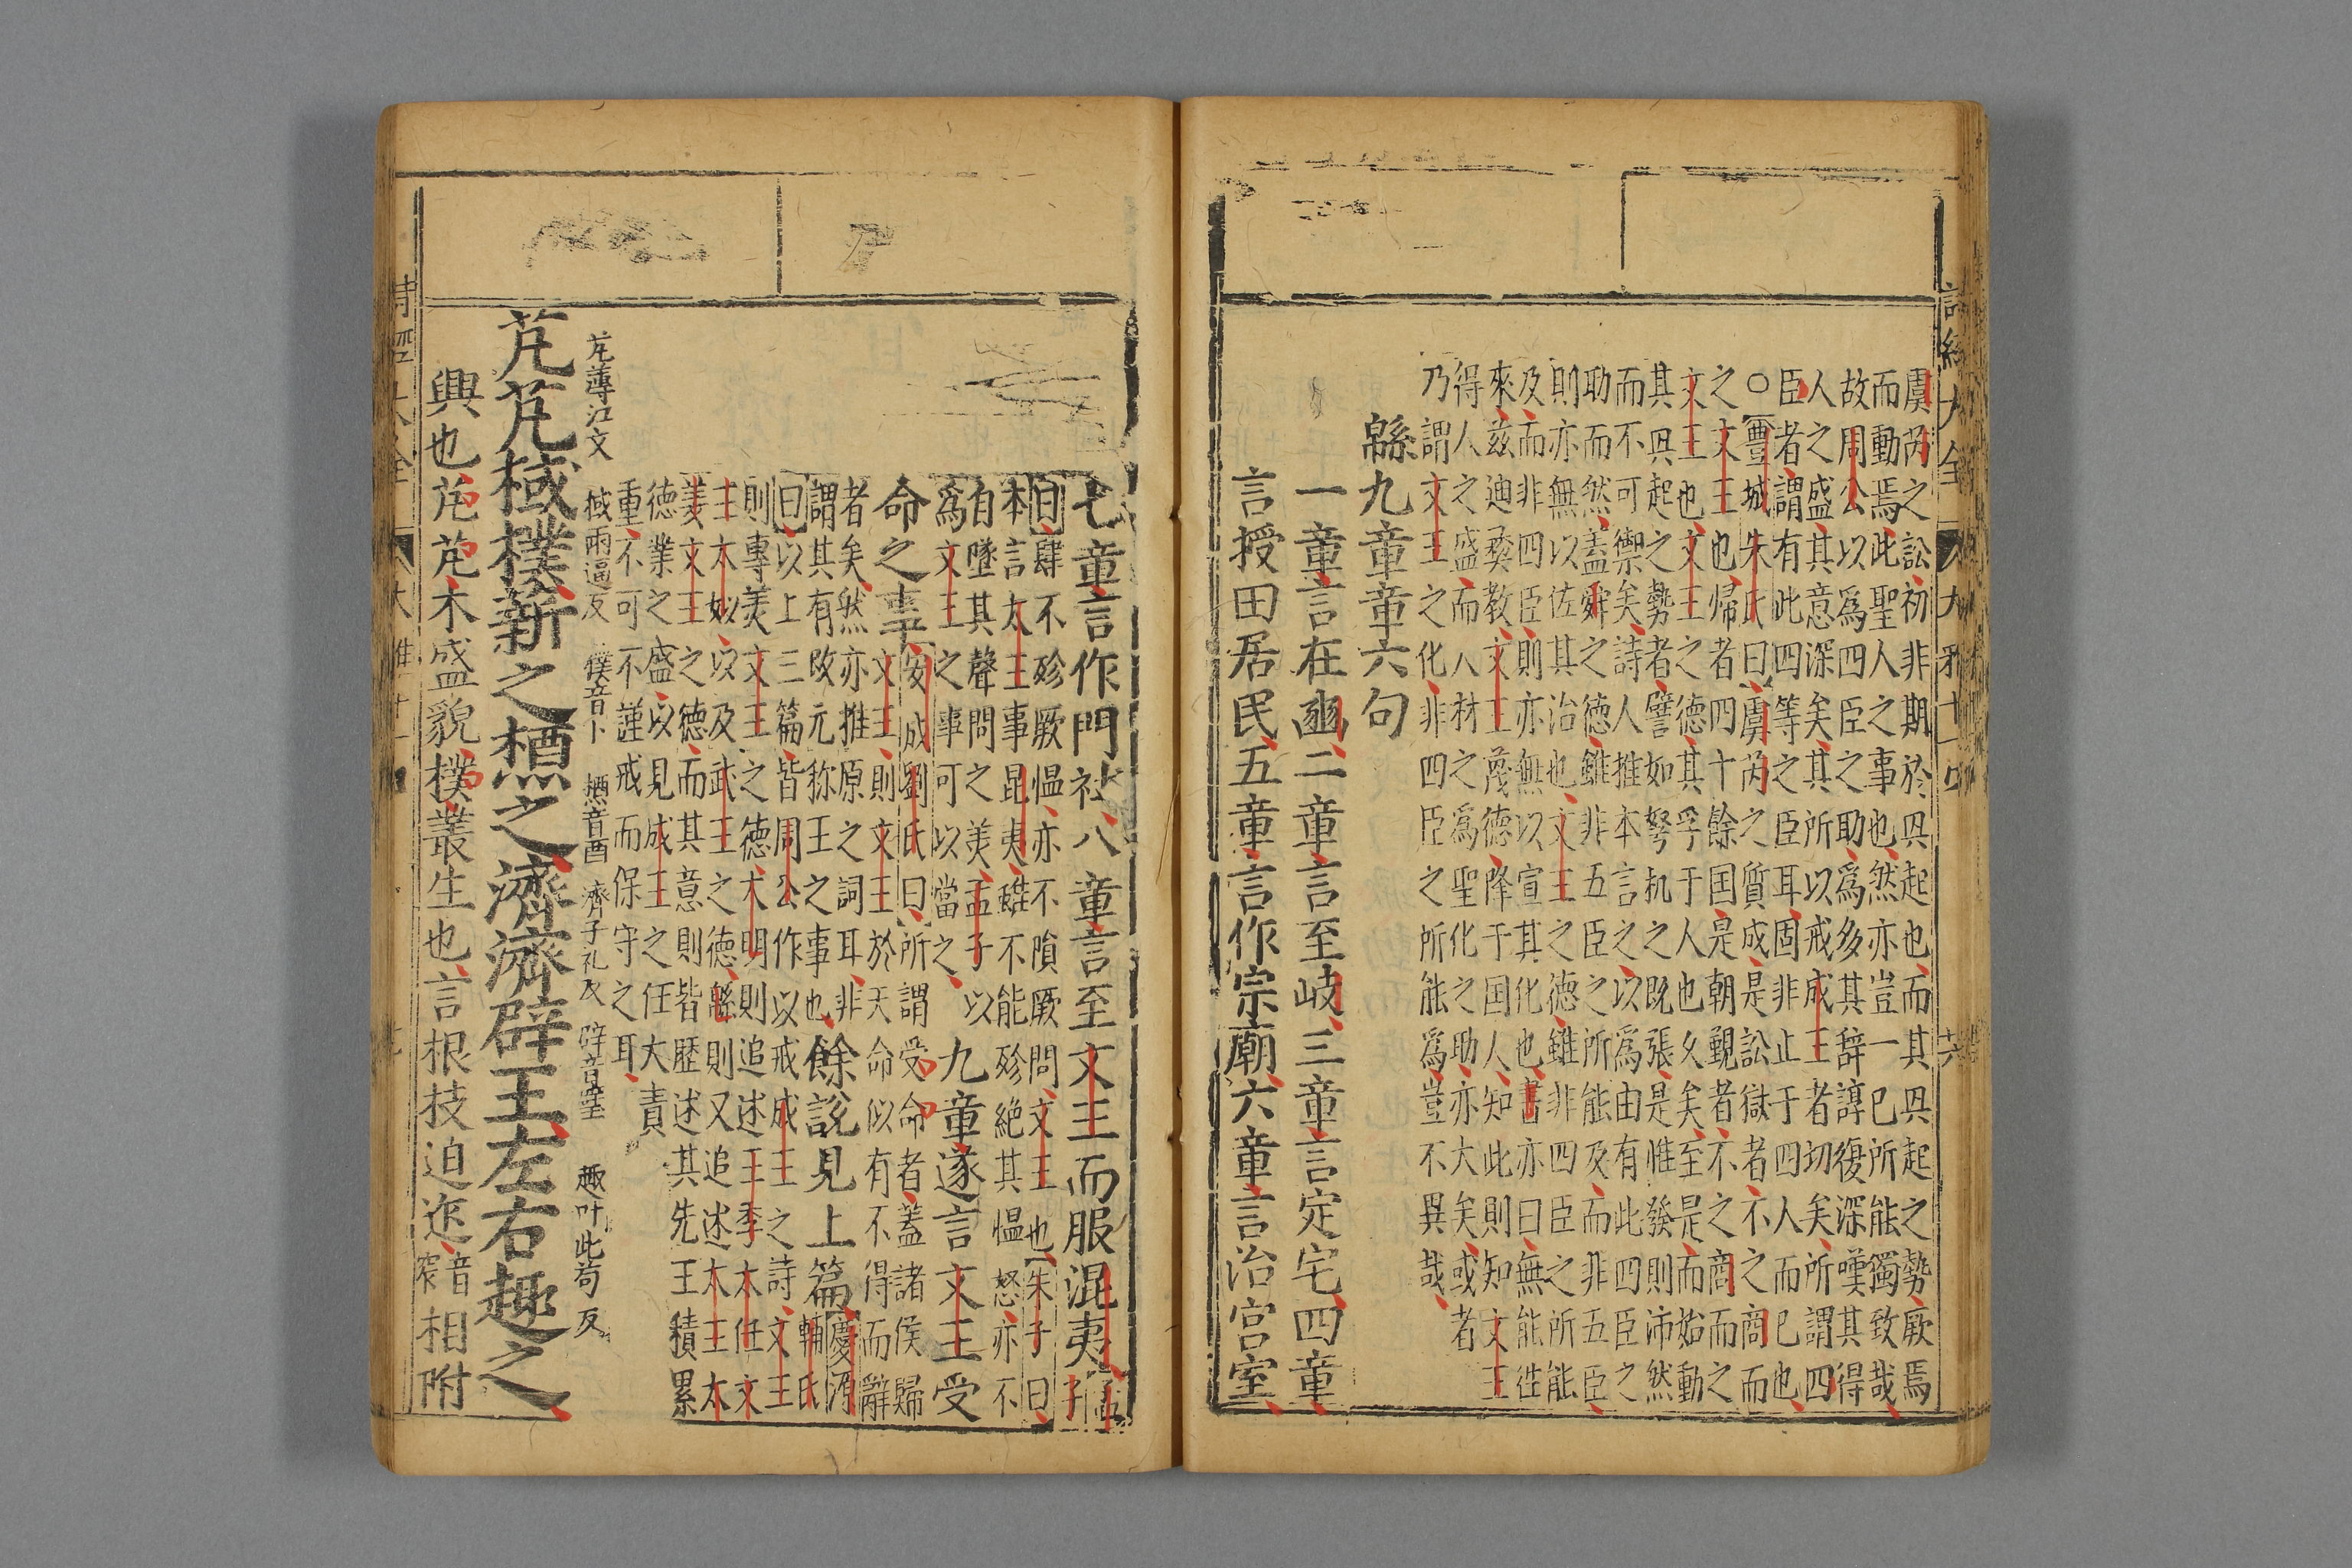 虞芮之訟初非期於興起也而其興起之勢厥焉
而動焉此聖人之事也然亦豈一已所能獨致哉
故周公以爲四臣之助爲多其辞諄復深嘆其得
人之盛其意深矣其所以戒成王者切矣所謂四
臣者謂有此四等之臣耳固非止于四人而已也
○豐城朱氏曰虞芮之質成是訟獄者不之商而
之文王也歸者四十餘国是朝覲者不之商而之
文王也文王之德其孚于人也久矣至是而始動
其興起之勢者譬如弩机之既張是惟發則沛然
而不可禦矣詩人推本言之以爲由有此四臣之
助而然盖舜之德雖非五臣之所能及而非五臣
則亦無以佐其治也文王之德雖非四臣之所能
及而非四臣則亦無以宣其化也書亦曰無能徃
來兹迪彛教文王蔑德降于国人知此則知文王
得人之盛而人材之爲聖化之助亦大矣或者
乃謂文王之化非四臣之所能爲豈不異哉
緜九章章六句
一章言在豳二章言至岐三章言定宅四章
言授田居民五章言作宗廟六章言治宫室
詩經大全
大雅十一
七章言作門社八章言至文王而服混夷孟子
曰肆不殄厥愠亦不隕厥問文王也朱子曰
本言太王事昆夷雖不能殄絶其愠怒亦不
自墜其聲問之美孟子以
爲文王之事可以當之
九章遂言文王受
命之事
安成劉氏曰所謂受命者蓋諸侯歸
文王則文王於天命似有不得而辭
者矣然亦推原之詞耳非
謂其有改元称王之事也
餘説見上篇
慶源
輔氏
曰以上三篇皆周公作以戒成王之詩文王
則專美文王之德大明則追述王季太任文
王太姒以及武王之德緜則又追述太王太
姜文王之德而其意則皆歷述其先王積累
德業之盛以見成王之任大責
重不可不謹戒而保守之耳
芃薄江文 棫雨逼反 樸音卜 槱音酉 濟子礼反 辟音璧 趣叶此苟反
芃芃棫樸薪之槱之濟濟辟王左右趣之
興也芃芃木盛貌樸叢生也言根枝迫迮音窄相附